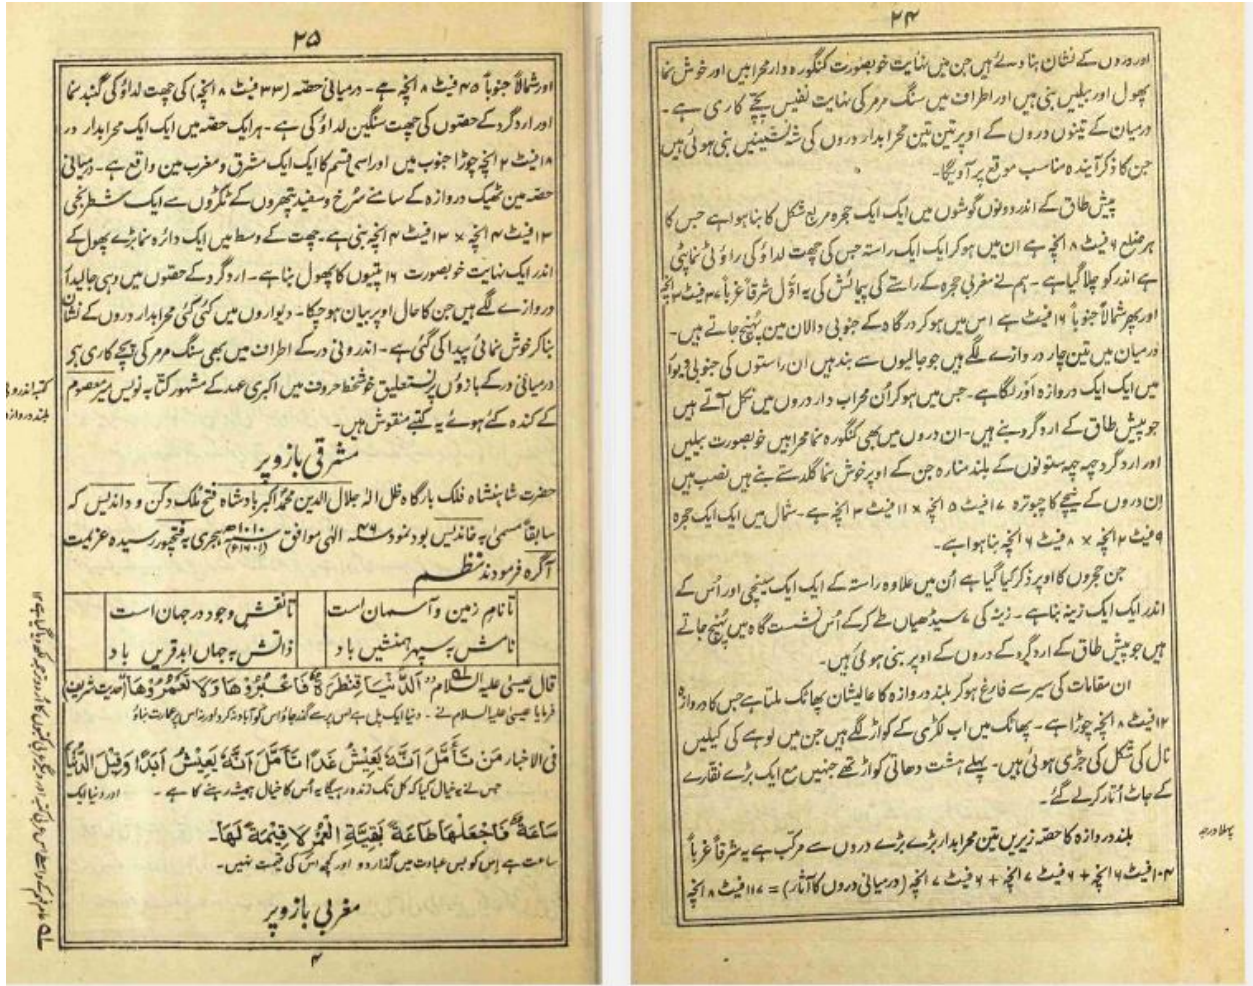 ۲۴
اور دروں کے نشان بنا دئے ہیں جن میں نہایت خوبصورت کنگورہ دار محرابیں اور خوش نما
پھول اور بیلیں بنی ہیں اور اطراف میں سنگ مرمر کی نہایت نفیس پچے کاری ہے۔
درمیان کے تینوں دروں کے اوپر تین تین محرابدار دروں کی شہ نشینیں بنی ہوئی ہیں
جن کا ذکر آیندہ مناسب موقع پر آویگا۔
پیش طاق کے اندر دونوں گوشوں میں ایک ایک حجرہ مربع شکل کا بنا ہوا ہے جس کا
ہر ضلع ۶ فیٹ ۸ انچہ ہے ان میں ہو کر ایک ایک راستہ جس کی چھت لداؤ کی راؤٹی نما پٹی
ہے اندر کو چلا گیا ہے۔ ہم نے مغربی حجرہ کے راستے کی پیمائش کی یہ اوّل شرقاً غرباً ۳۷ فیٹ ۲ انچہ
اور پھر شمالاً جنوباً ۱۶ فیٹ ہے اس میں ہو کر درگاہ کے جنوبی دالان مین پہنچ جاتے ہیں۔
درمیان میں تین چار دروازے لگے ہیں جو جالیوں سے بند ہیں ان راستوں کی جنوبی دیوار
میں ایک ایک دروازہ اَور لگا ہے۔ جس میں ہو کر اُن محراب دار دروں میں نکل آتے ہیں
جو پیش طاق کے ارد گرد بنے ہیں۔ ان دروں میں بھی کنگورہ نما محرابیں خوبصورت بیلیں
اور ارد گرد چپہ چپہ ستونوں کے بلند منارہ جن کے اوپر خوش نما گلدستے بنے ہیں نصب ہیں
اِن دروں کے نیچے کا چبوترہ ۱۷ فیٹ ۵ انچہ × ۱۱ فیٹ ۳ انچہ ہے۔ شمال میں ایک ایک حجرہ
۹ فیٹ ۲ انچہ × ۸ فیٹ ۶ انچہ بنا ہوا ہے۔
جن حجروں کا اوپر ذکر کیا گیا ہے اُن میں علاوہ راستہ کے ایک ایک سینچی اور اُس کے
اندر ایک ایک زینہ بنا ہے۔ زینہ کی ۷ سیڈھیاں طے کر کے اُس نشست گاہ میں پہنچ جاتے
ہیں جو پیش طاق کے ارد گرد کے دروں کے اوپر بنی ہوئی ہیں۔
ان مقامات کی سیر سے فارغ ہو کر بلند دروازہ کا عالیشان پھاٹک ملتا ہے جس کا دروازہ
۱۲ فیٹ ۸ انچہ چوڑا ہے۔ پھاٹک میں اب لکڑی کے کواڑ لگے ہیں جن میں لوہے کی کیلیں
نال کی شکل کی جڑی ہوئی ہیں۔ پہلے ہشت دھاتی کواڑ تھے جنہیں مع ایک بڑے نقارے
کے جاٹ اُتار کر لے گئے۔
پہلا درجہ
بلند دروازہ کا حصّہ زیریں تین محرابدار بڑے بڑے دروں سے مرکب ہے یہ شرقاً غرباً
۱۰۴ فیٹ ۶ انچہ + ۶ فیٹ ۷ انچہ + ۶ فیٹ ۷ انچہ (درمیانی دروں کا آثار) = ۱۱۷ فیٹ ۸ انچہ
۲۵
اور شمالاً جنوباً ۴۵ فیٹ ۸ انچہ ہے۔ درمیانی حصّہ (۳۳ فیٹ ۸ انچہ) کی چھت لداؤ کی گنبد نما
اور ارد گرد کے حصّوں کی چھت سنگین لداؤ کی ہے۔ ہر ایک حصّہ میں ایک ایک محرابدار در
۱۸ فیٹ ۲ انچہ چوڑا جنوب میں اور اسی قسم کا ایک ایک مشرق و مغرب مین واقع ہے۔ درمیانی
حصّہ مین ٹھیک دروازہ کے سامنے سُرخ و سفید پتھروں کے ٹکڑوں سے ایک شطرنجی
۱۳ فیٹ ۴ انچہ × ۱۳ فیٹ ۴ انچہ بنی ہے۔ چھت کے وسط میں ایک دائرہ نما بڑے پھول کے
اندر ایک نہایت خوبصورت ۱۶ پتیوں کا پھول بنا ہے۔ ارد گرد کے حصّوں میں وہی جالیدار
دروازے لگے ہیں جن کا حال اوپر بیان ہو چکا۔ دیواروں میں کئی کئی محرابدار دروں کے نشان
بنا کر خوش نمائی پیدا کی گئی ہے۔ اندرونی در کے اطراف میں بھی سنگ مرمر کی پچے کاری ہے
درمیانی در کے بازوؤں پر نستعلیق خوشخط حروف میں اکبری عہد کے مشہور کتابہ نویس میر معصوم
کے کندہ کئے ہوئے یہ کتبے منقوش ہیں۔
کتبہ اندرونی
بلند دروازہ
مشرقی بازو پر
حضرت شاہنشاہ فلک بارگاہ ظل الہ جلال الدین محمد اکبر بادشاہ فتح ملک دکن و داندیس کہ
سابقاً مسمیٰ بہ خاندیس بود نمود سنہ ۴۶ الٰہی موافق سنہ ۱۰۱۰ ہجری (۱۶۰۱ء) بہ فتحپور رسیدہ عزیمت
آگرہ فرمودند نظم
تا نام زمین و آسمان است
تا نقش وجود در جہان است
نامش بہ سپہر ہمنشیں باد
ذاتش بہ جہاں ابد قریں باد
قال عیسیٰ علیہ السلام اَلدُّنْیَا قَنْطَرَةٌ فَاعْبُرُوْهَا وَلَا تَعْمُرُوْهَا (حدیث شریف)
فرمایا عیسیٰ علیہ السلام نے۔ دنیا ایک پل ہے اس پر سے گذر جاؤ اس کو آباد نہ کرو اور نہ اس پر عمارت بناؤ
فی الاخبار مَنْ تَأَمَّلَ اَنَّهٗ یَعِیْشُ غَدًا تَأَمَّلَ اَنَّهٗ یَعِیْشُ اَبَدًا وَقِیْلَ الدُّنْیَا
جس نے یہ خیال کیا کہ کل تک زندہ رہیگا یہ اُس کا خیال ہمیشہ رہنے کا ہے۔ اور دنیا ایک
سَاعَةٌ فَاجْعَلْهَا طَاعَةً بَقِیَّةِ الْعُمْرِ لَا قِیْمَةَ لَهَا۔
ساعت ہے اِس کو بس عبادت میں گذار دو اور کچھ اس کی قیمت نہیں۔
مغربی بازو پر
۴